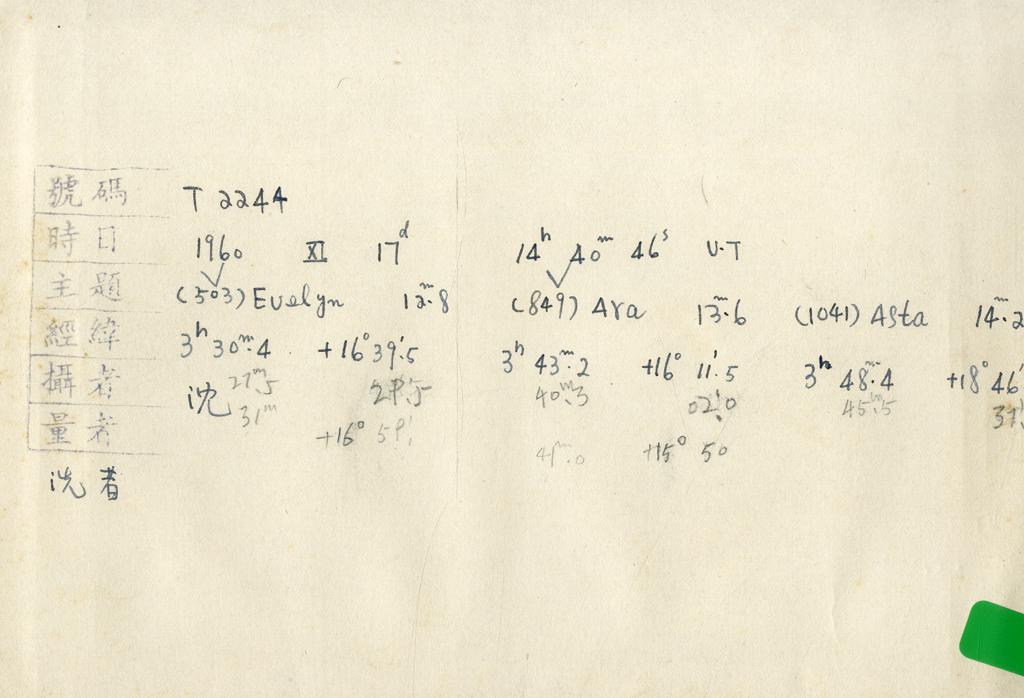 號碼 T 2244
時日 1960 XI 17d 14h 40m 46s U.T
主題 (503) Evelyn 12m.8 (849) Ara 13m.6 (1041) Asta 14m.2
經緯 3h 30m.4 +16° 39'.5 3h 43m.2 +16° 11'.5 3h 48m.4 +18° 46'
攝者 沈 27m.5 29'.5 40m.3 02'.0 45m.5
量者 31m +16° 59' 41m.0 +15° 50
洗者